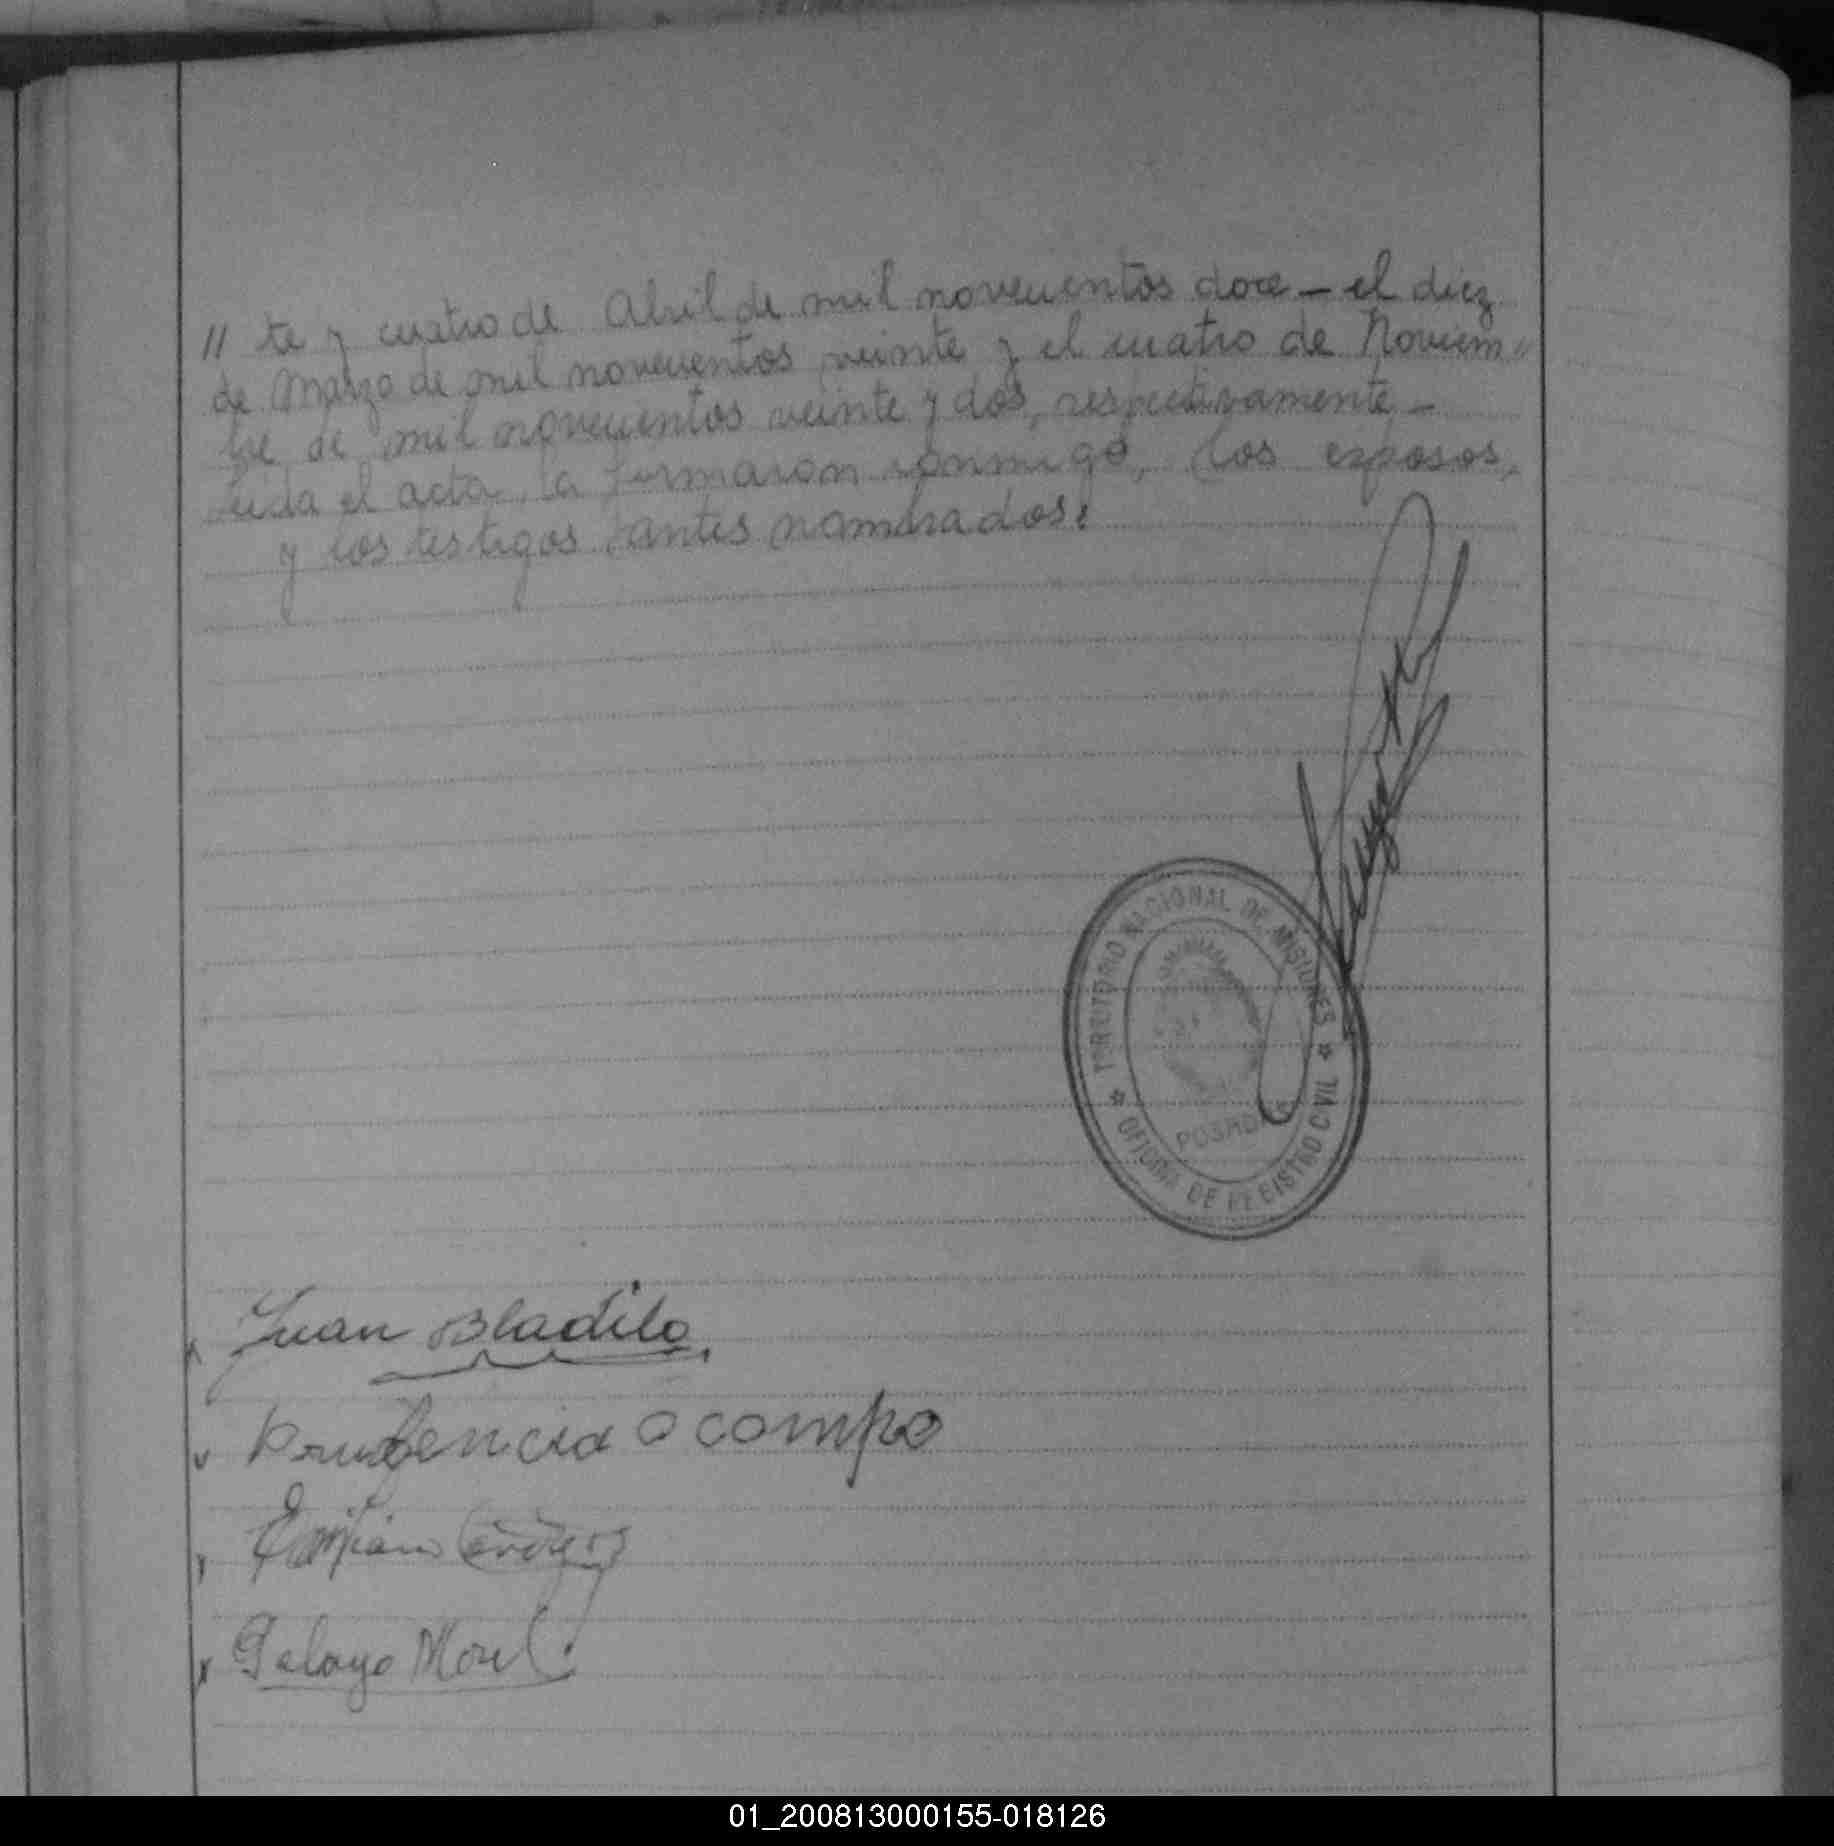 // te y cuatro de Abril de mil novecientos doce – el diez
de Marzo de mil novecientos veinte y el cuatro de Noviem //
bre de mil novecientos veinte y dos, respectivamente –
Leida el acta, la firmaron conmigo, los esposos,
y los testigos antes nombrados:
TERRITORIO NACIONAL DE MISIONES
POSADAS
OFICINA DE REGISTRO CIVIL
Juan Bladilo
Prudencia Ocampo
Pelayo Morel
01_200813000155-018126